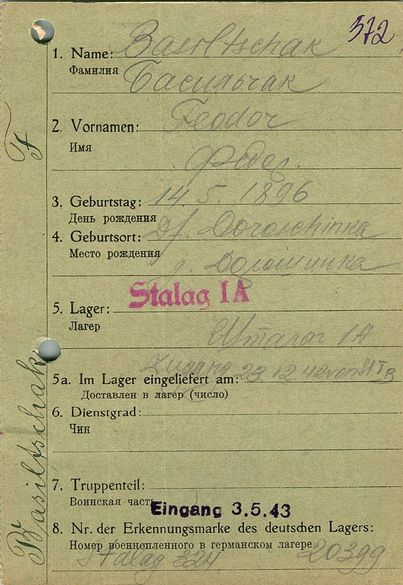 372
1. Name: Basiltschak
Фамилия Басильчак
2. Vornamen: Feodor
Имя
3. Geburtstag: 14.5.1896
День рождения
4. Geburtsort: Df. Doroschinka
Место рождения
Stalag IA
5. Lager:
Лагер Шталаг IA
5a. Im Lager eingeliefert am: Zugang 23.12.42 von St I B
Доставлен в лагер (число)
6. Dienstgrad:
Чин
7. Truppenteil:
Воинская часть
Eingang 3.5.43
8. Nr. der Erkennungsmarke des deutschen Lagers:
Номер военнопленного в германском лагере 20399
Stalag 324
Basiltschak F